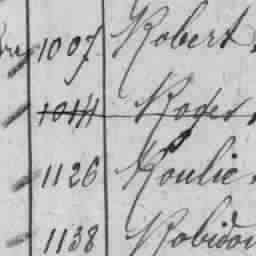 1007 Robert
1014 Roger
1126 Roulie
1138 Robidou